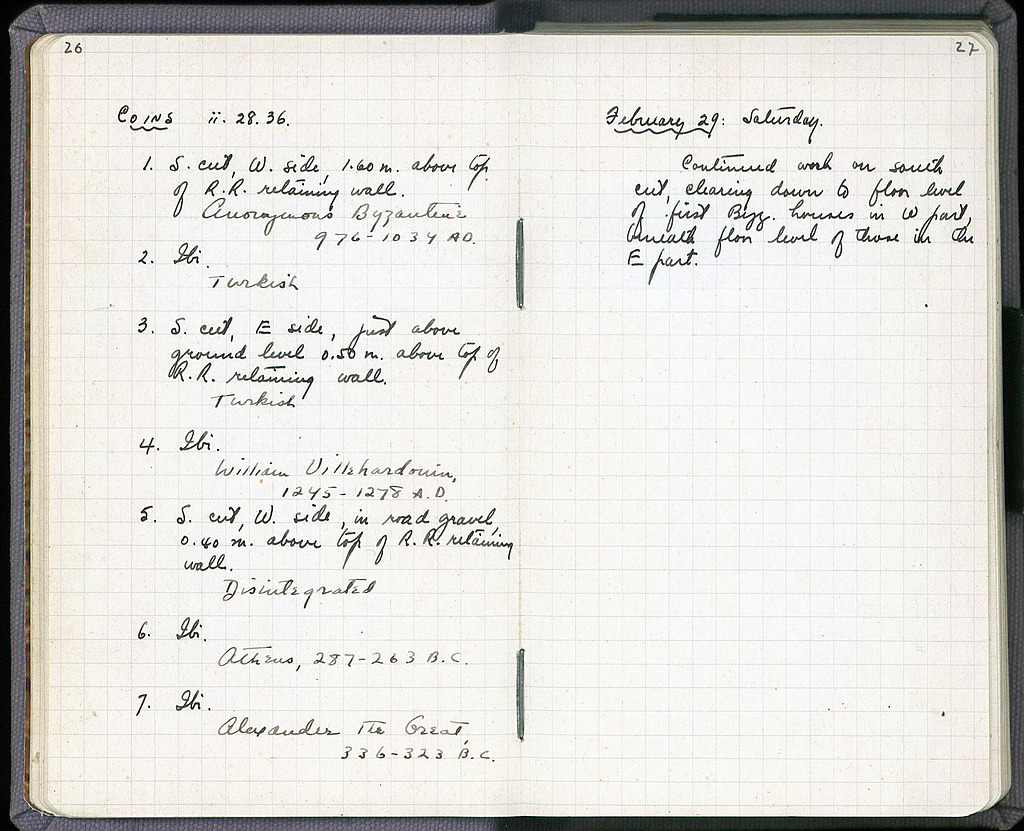 26
Coins ii. 28. 36.
1. S. cut, W. side, 1.60 m. above top
of R.R. retaining wall.
Anonymous Byzantine
976-1034 AD.
2. Ibi.
Turkish
3. S. cut, E side, just above
ground level 0.50 m. above top of
R.R. retaining wall.
Turkish
4. Ibi.
William Villehardouin,
1245-1278 A.D.
5. S. cut, W. side, in road gravel,
0.40 m. above top of R.R. retaining
wall.
Disintegrated
6. Ibi.
Athens, 287-263 B.C.
7. Ibi.
Alexander the Great,
336-323 B.C.
27
February 29: Saturday.
Continued work on south
cut, clearing down to floor level
of first Byz. houses in W part,
beneath floor level of those in the
E part.